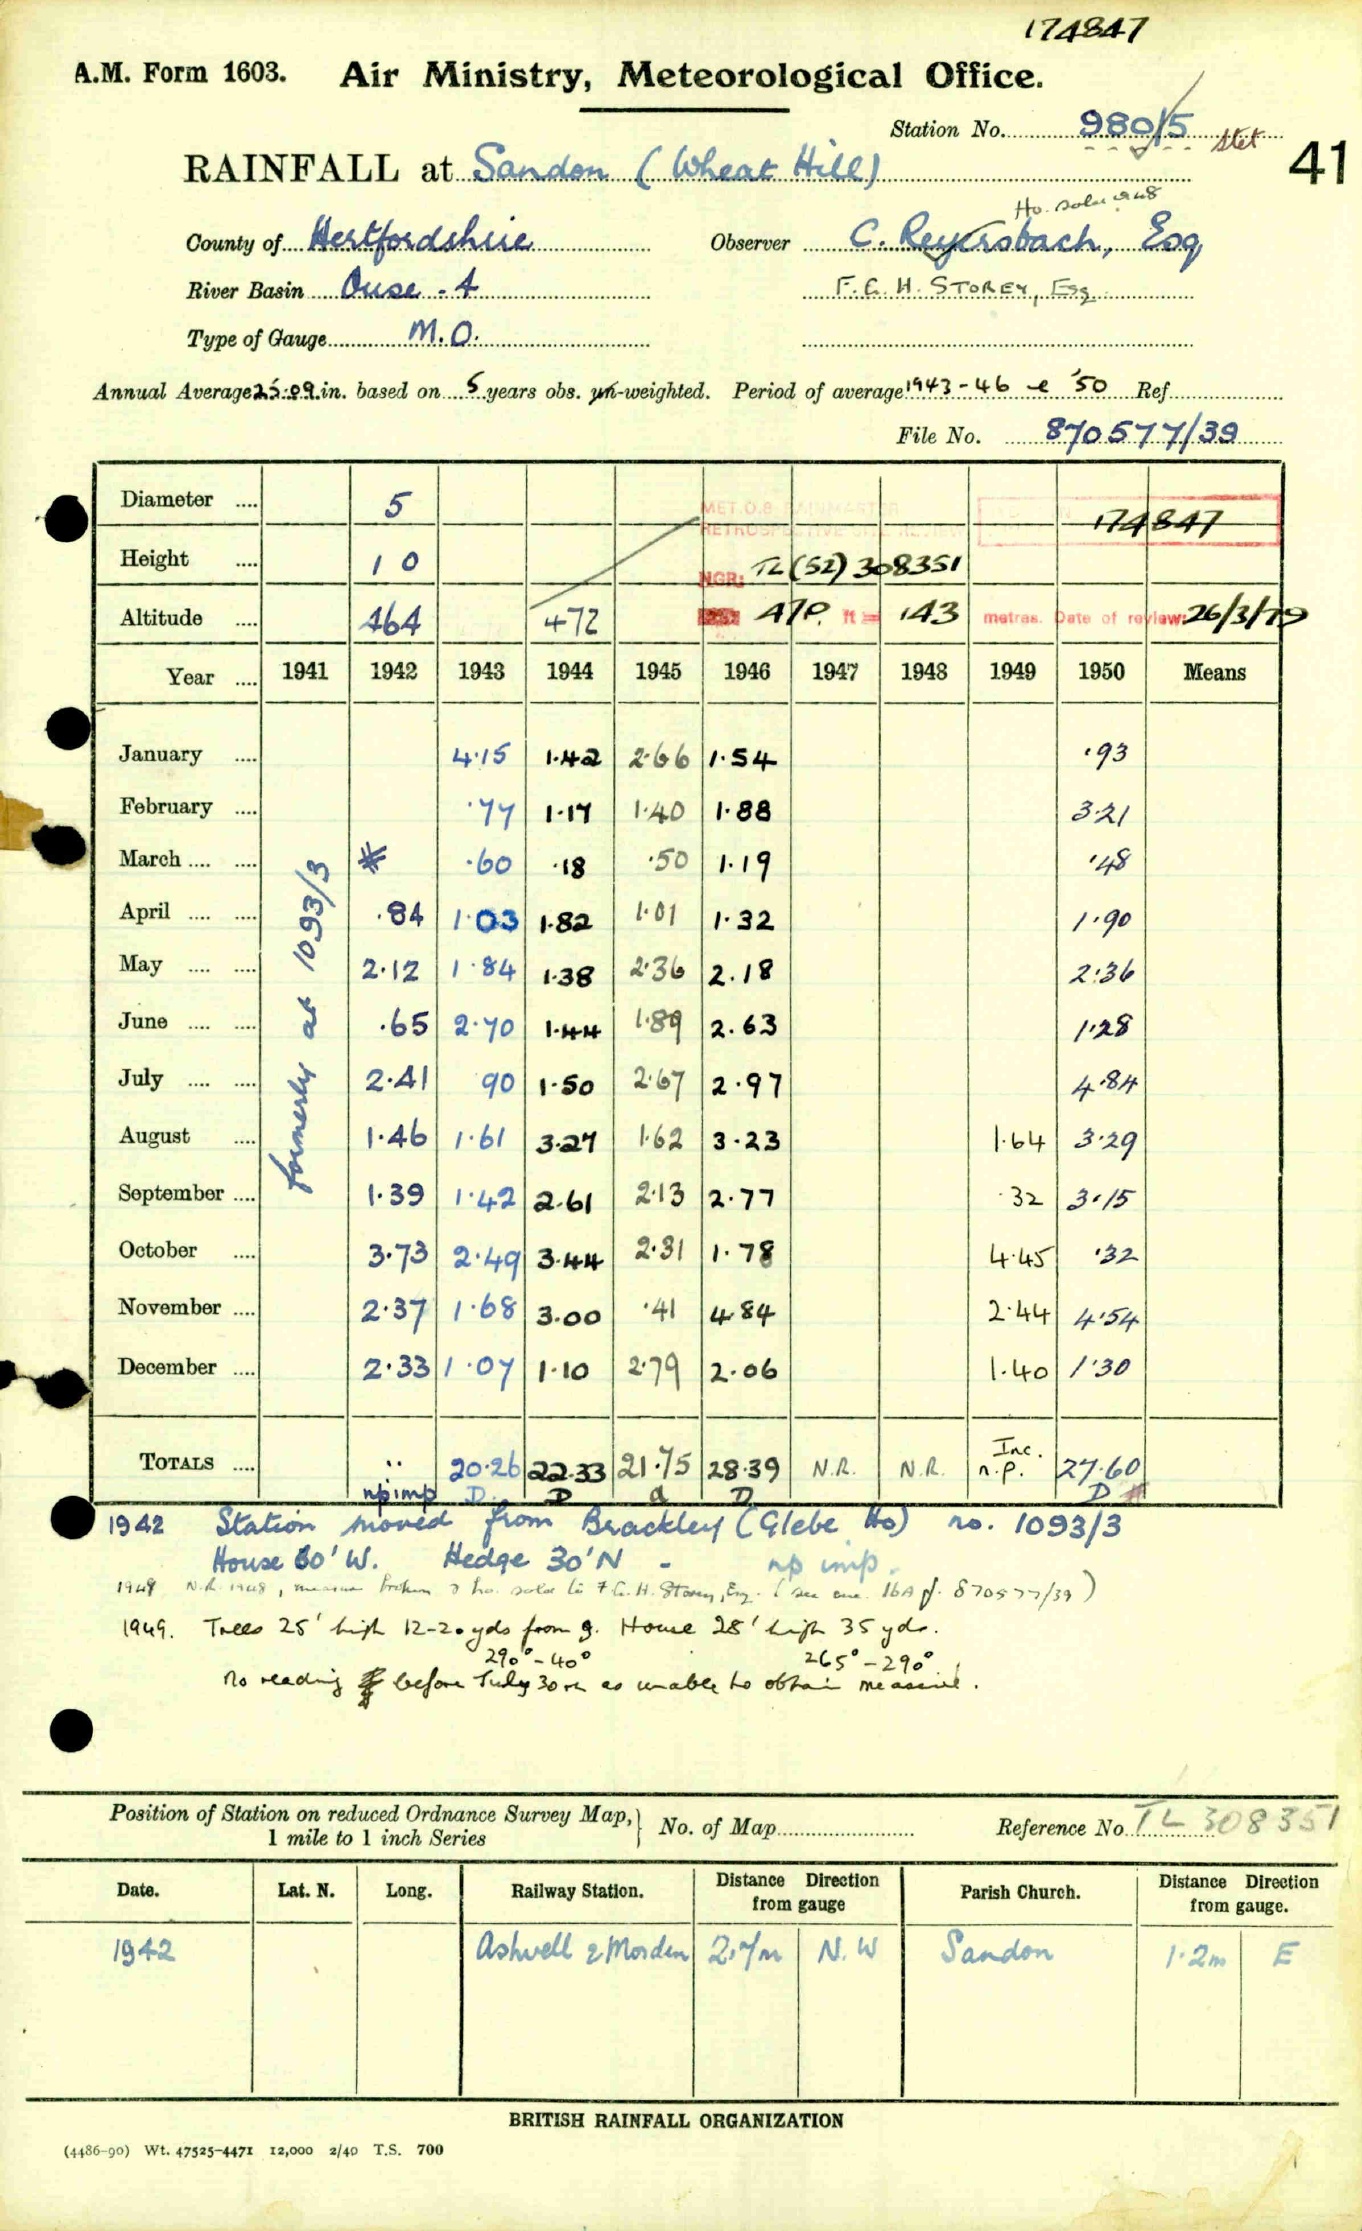 174847
A.M. Form 1603. Air Ministry, Meteorological Office.
Station No. 980/5 stet
41
RAINFALL at Sandon (Wheat Hill)
Ho. sold 1948
County of Hertfordshire Observer C. Reyersbach, Esq
River Basin Ouse - 4 F. C. H. STOREY, Esq.
Type of Gauge M.O.
Annual Average 25.09 in. based on 5 years obs. un-weighted. Period of average 1943-46 & '50 Ref
File No. 870577/39
Diameter .... 5 MET.O.8 RAINMASTER
RETROSPECTIVE SITE REVIEW 174847
Height .... 10 NGR: TL(52) 308351
Altitude .... 464 472 470 ft = 143 metres. Date of review: 26/3/79
Year .... 1941 1942 1943 1944 1945 1946 1947 1948 1949 1950 Means
January .... 4.15 1.42 2.66 1.54 .93
February .... .77 1.17 1.40 1.88 3.21
March .... .... * .60 .18 .50 1.19 .48
April .... .... .84 1.03 1.82 1.01 1.32 1.90
May .... .... 2.12 1.84 1.38 2.36 2.18 2.36
June .... .... .65 2.70 1.44 1.89 2.63 1.28
July .... .... 2.41 90 1.50 2.67 2.97 4.84
August .... 1.46 1.61 3.27 1.62 3.23 1.64 3.29
September .... 1.39 1.42 2.61 2.13 2.77 .32 3.15
October .... 3.73 2.49 3.44 2.31 1.78 4.45 .32
November .... 2.37 1.68 3.00 .41 4.84 2.44 4.54
December .... 2.33 1.07 1.10 2.79 2.06 1.40 1.30
formerly at 1093/3
TOTALS .... .. 20.26 22.33 21.75 28.39 N.R. N.R. Inc. n.p. 27.60
np imp D. D d D D
1942 Station moved from Brackley (Glebe Ho) no. 1093/3
House 60' W. Hedge 30' N - np imp.
1948 N.R. 1948, measure broken & ho. sold to F.C.H. Storey, Esq. (see enc. 16A of 870577/39)
1949. Trees 25' high 12-20 yds from g. House 28' high 35 yds.
290° - 40° 265° - 290°
No reading before July 30th as unable to obtain measure.
Position of Station on reduced Ordnance Survey Map,
1 mile to 1 inch Series
No. of Map
Reference No. TL 308351
Date. Lat. N. Long. Railway Station. Distance Direction from gauge Parish Church. Distance Direction from gauge.
1942 Ashwell & Morden 2.7m N.W Sandon 1.2m E
BRITISH RAINFALL ORGANIZATION
(4486-90) Wt. 47525-4471 12,000 2/40 T.S. 700